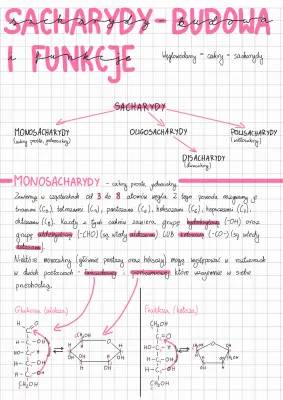 SACHARYDY - BUDOWA
I FUNKCJE
Węglowodany = cukry = sacharydy
SACHARYDY
MONOSACHARYDY
OLIGOSACHARYDY
POLISACHARYDY
(cukry proste, jednocukry)
(wielocukry)
DISACHARYDY
(dwucukry)
MONOSACHARYDY - cukry proste, jednocukry.
Zawierają w cząsteczkach od 3 do 8 atomów węgla. Z tego powodu rozróżniamy je
triozami (C₃), tetrozami (C₄), pentozami (C₅), heksozami (C₆), heptozami (C₇),
oktozami (C₈). Każdy z tych cukrów zawiera grupy hydroksylowe (-OH) oraz
grupę aldehydową (-CHO) (są wtedy aldozami) LUB ketonową (-CO-) (są wtedy
ketozami).
Niektóre monocukry (głównie pentozy oraz heksozy) mogą występować w roztworach
w dwóch postaciach - łańcuchowej i pierścieniowej, które wzajemnie w siebie
przechodzą.
Glukoza (aldoza)
Fruktoza (ketoza)
CH₂OH
CH₂OH